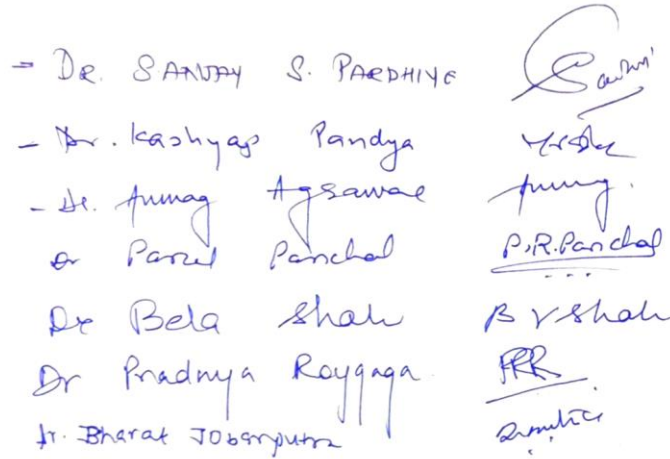 - DR. SANJAY S. PARDHIYE
- Dr. Kashyap Pandya
- Dr. Anurag Agrawal
Dr Parul Panchal P.R.Panchal
Dr Bela Shah B V Shah
Dr Pradnya Roygaga PRR
Dr. Bharat Jobanputra